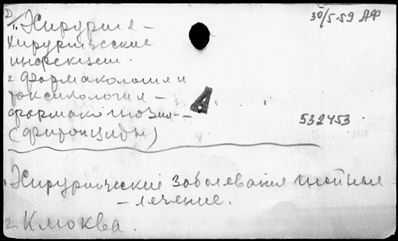 1. Хирургия — 30/5-59 АФ
хирургические
инфекции.
2 Фармакология и
токсикология —
фармакогнозия — А 532453
(фитонциды)
Хирургические заболевания гнойные
— лечение.
2. Клюква.